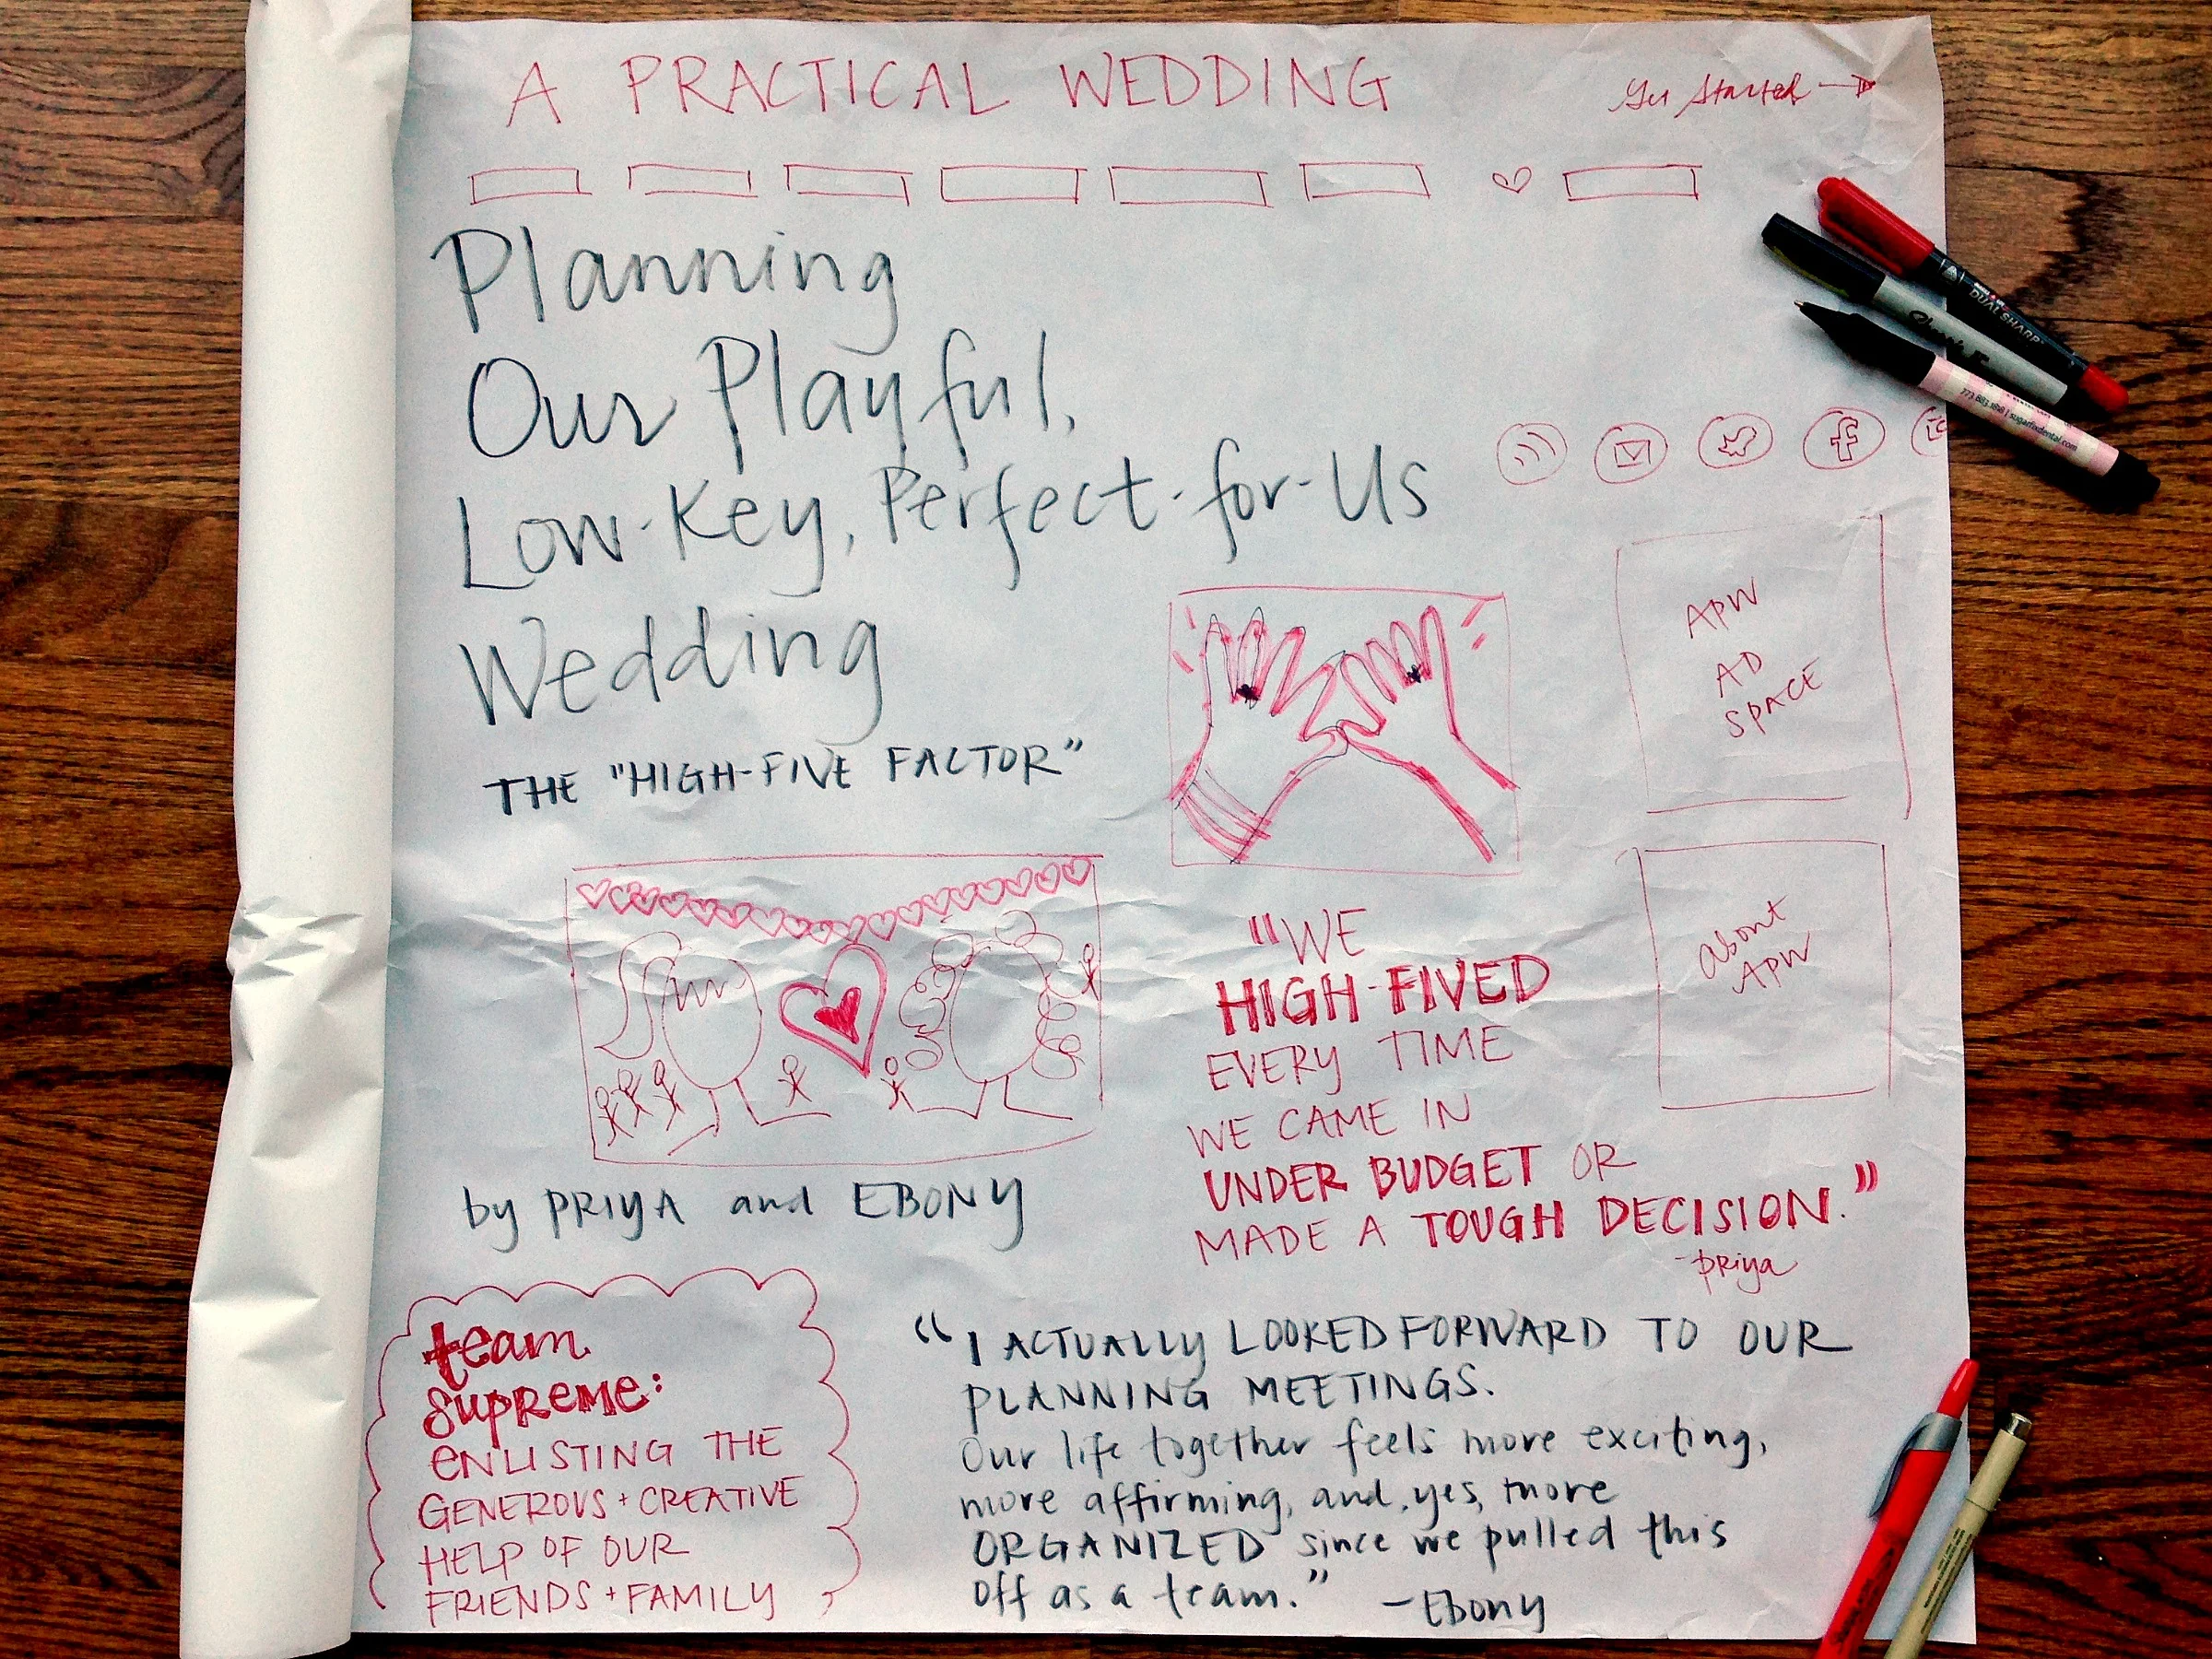 A PRACTICAL WEDDING
Get Started
Planning
Our Playful,
Low-Key, Perfect-for-Us
Wedding
THE "HIGH-FIVE FACTOR"
APW
AD
SPACE
about
APW
"WE
HIGH-FIVED
EVERY TIME
WE CAME IN
UNDER BUDGET OR
MADE A TOUGH DECISION."
-priya
by PRIYA and EBONY
team
supreme:
ENLISTING THE
GENEROUS + CREATIVE
HELP OF OUR
FRIENDS + FAMILY
"I ACTUALLY LOOKED FORWARD TO OUR
PLANNING MEETINGS.
Our life together feels more exciting,
more affirming, and, yes, more
ORGANIZED since we pulled this
off as a team." -Ebony
Sharpie
DUAL SHARP
773.883.1818 | sugarfixdental.com